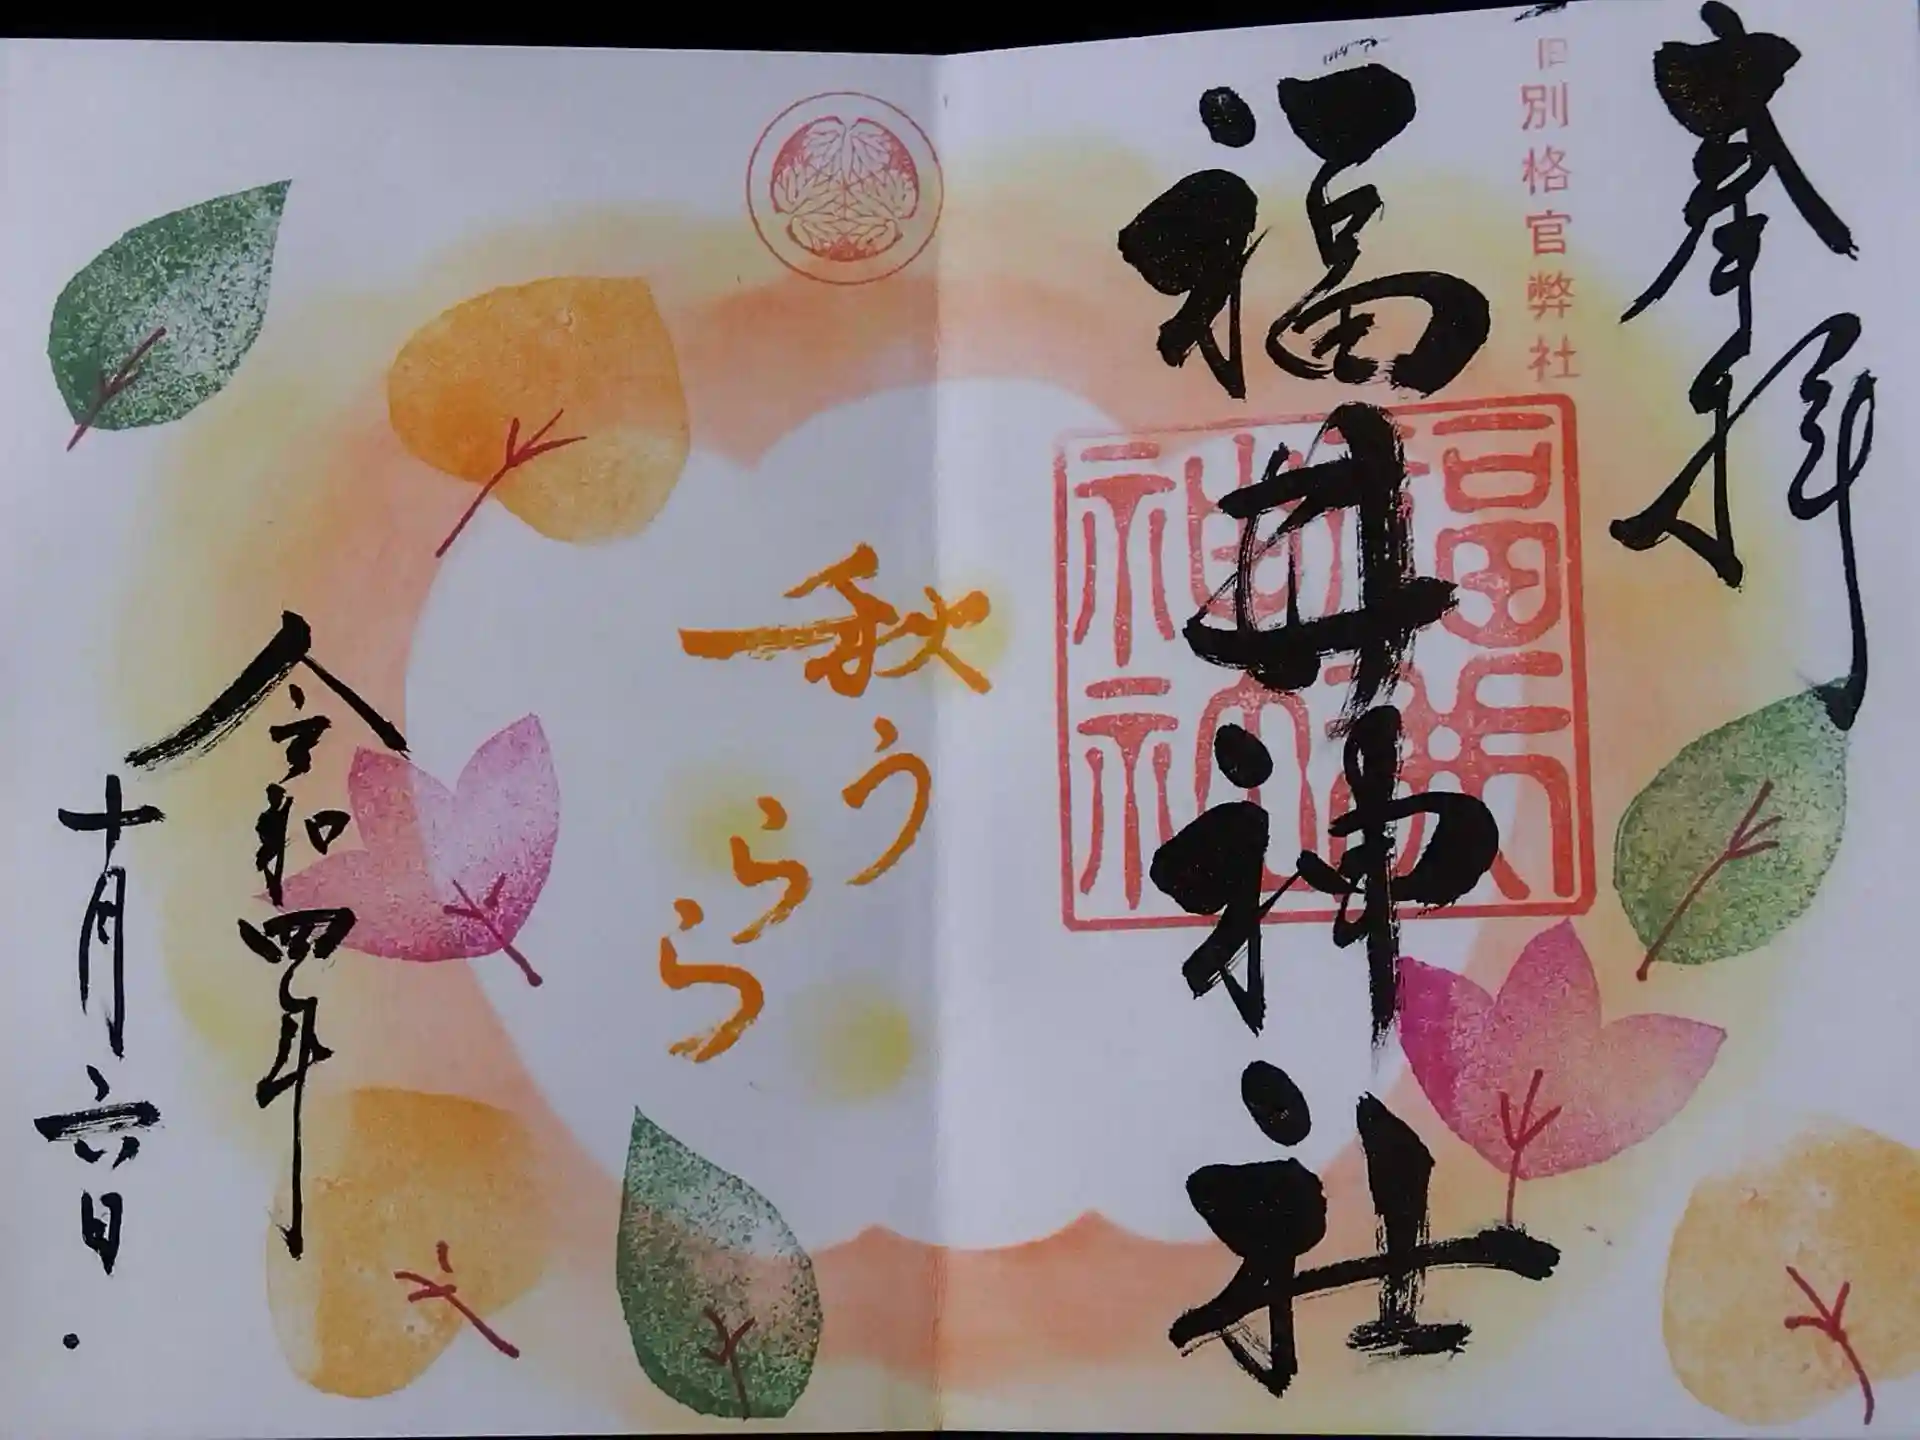 奉拝
旧別格官幣社
福井神社
福井神社
秋うらら
令和四年
十月六日